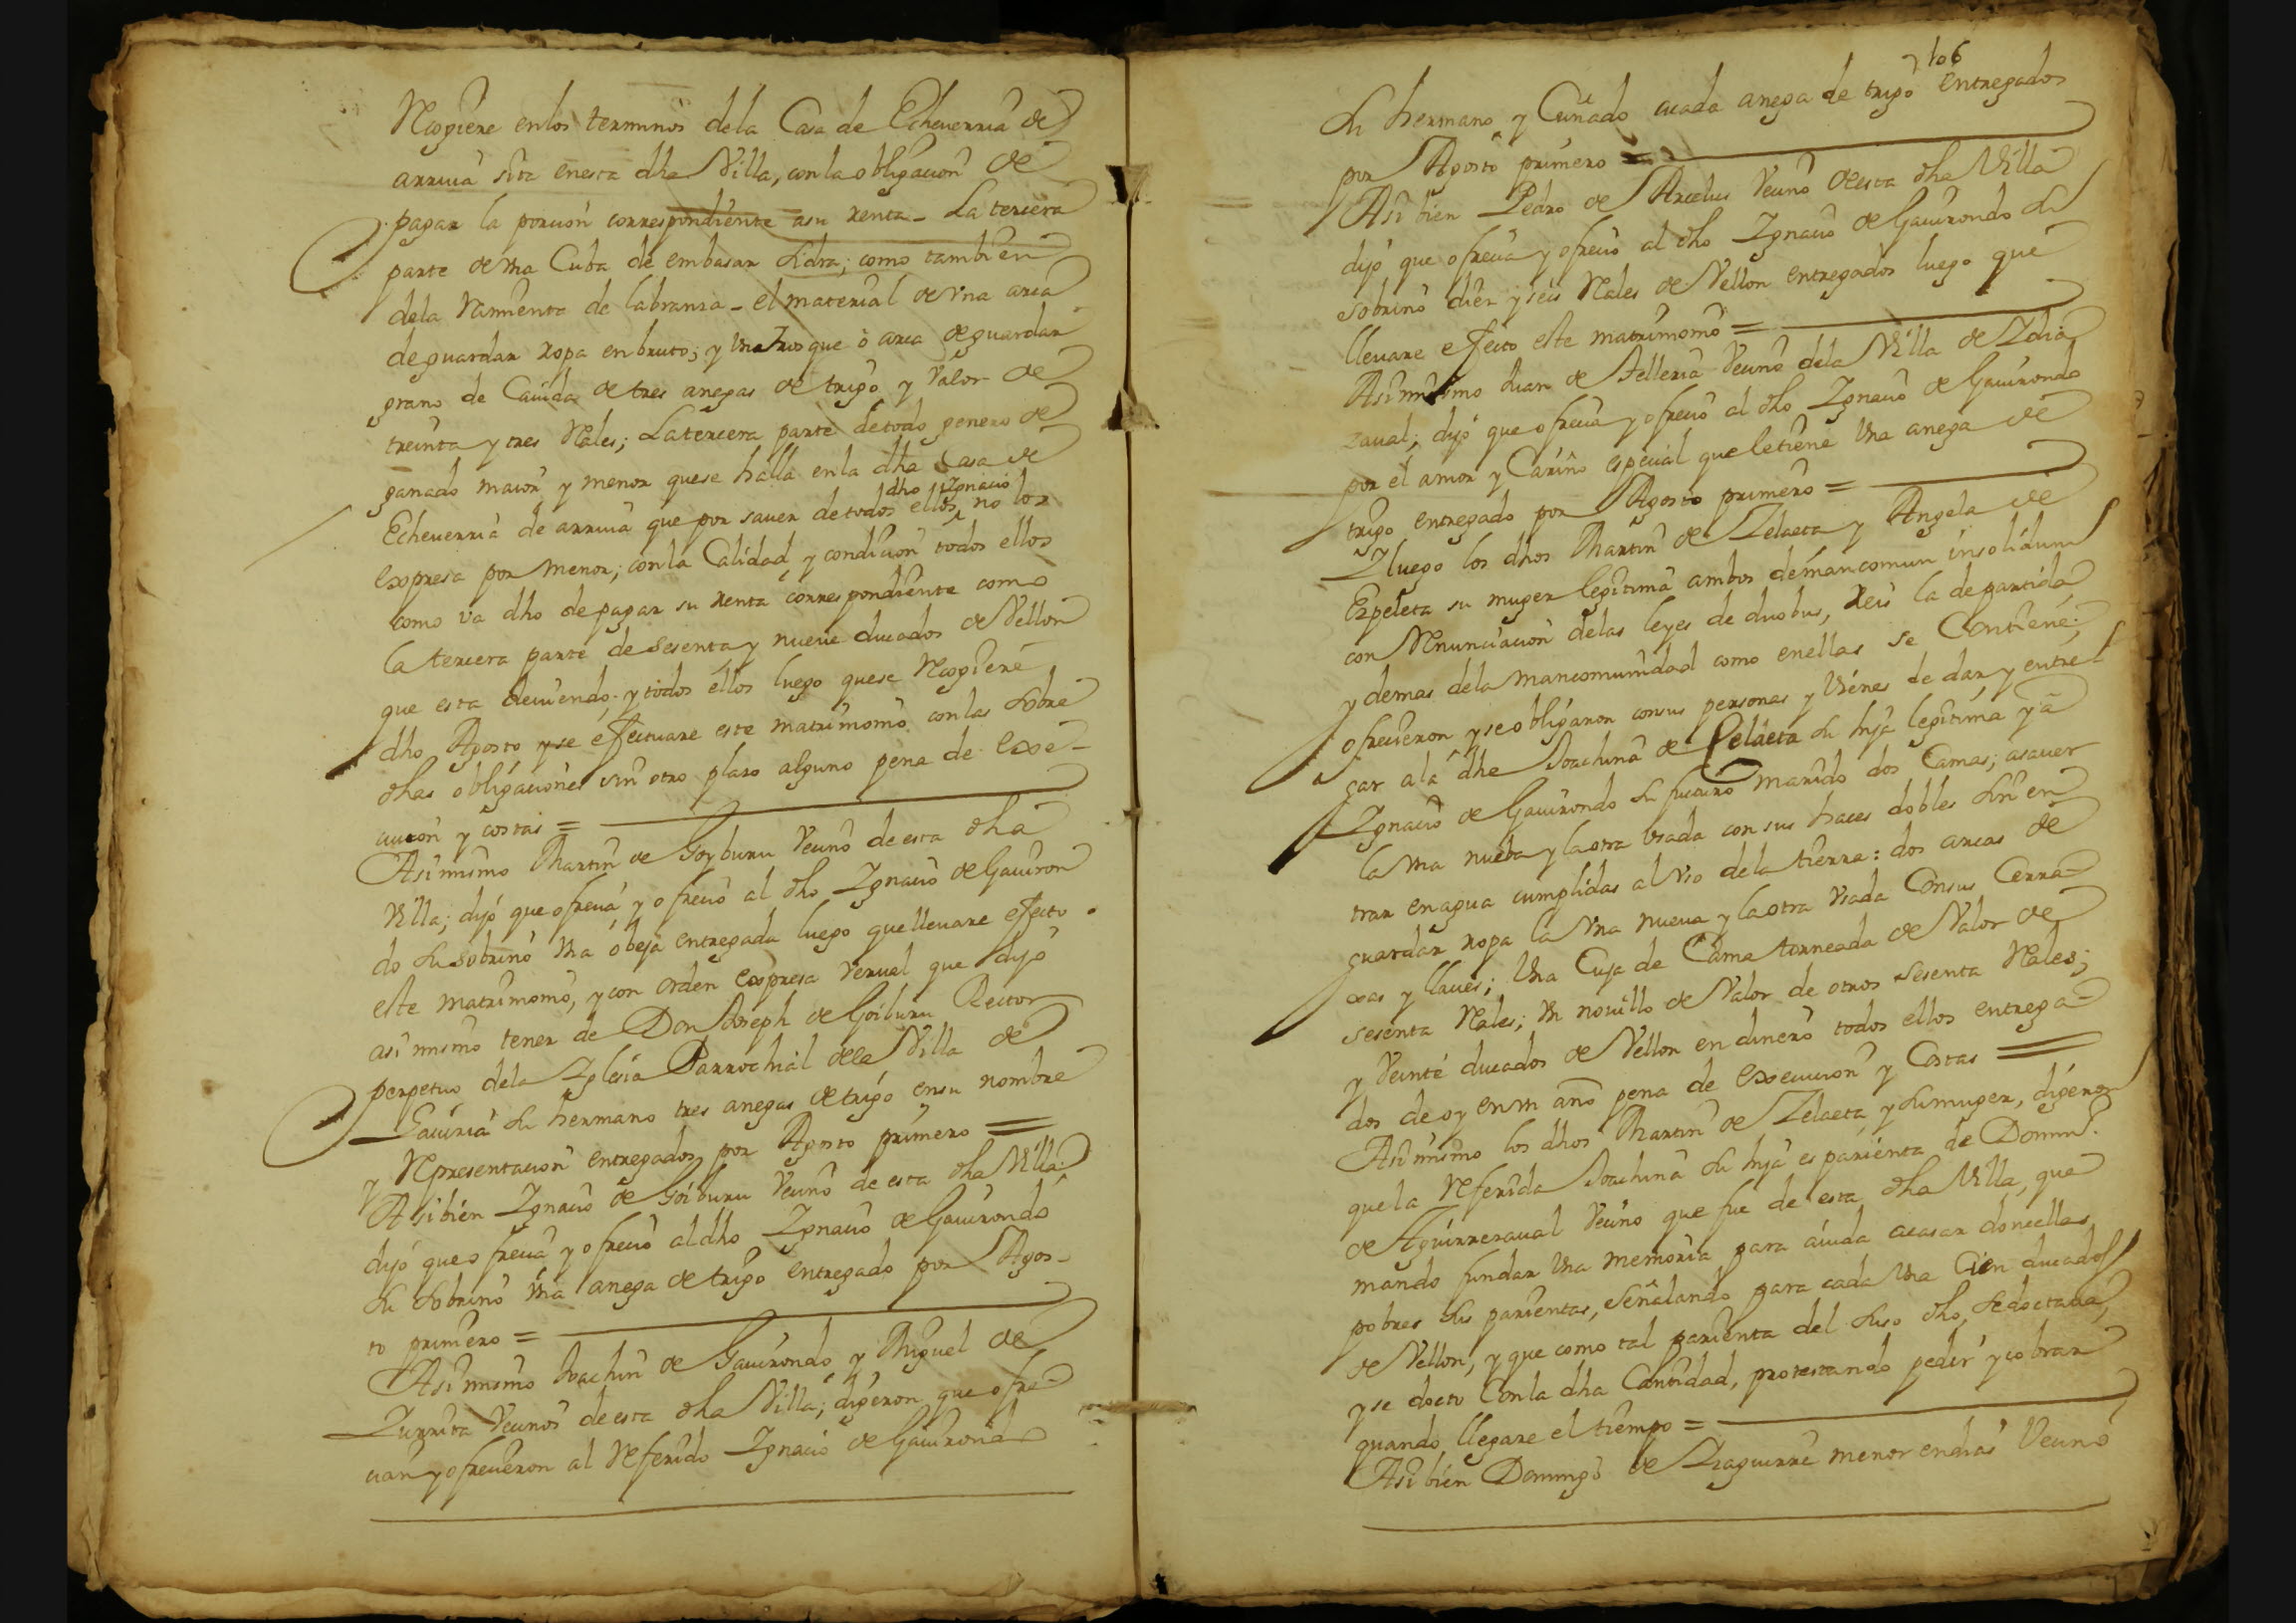 Recogiere enlos terminos dela Casa de Echeverria de
arriua sita enesta dha Villa, conla obligacion de
pagar la porcion correspondiente asu renta - La tercera
parte de vna Cuba de embasar sidra; como tambien
dela rramienta de labranza - el material de vna arca
deguardar ropa enbruto; y vna troxque ò arca deguardar
grano de Cauida de tres anegas de trigo y Valor de
treinta y tres Reales; La tercera parte detodo genero de
ganado maior y menor quese halla enla dha Casa de
Echeuerria de arriua que por sauer detodos ellos dho Ignacio no los
Expresa por menor; conla Calidad y condicion todos ellos
como va dho depagar su renta correspondiente como
la tercera parte desesenta y nueue ducados de Vellon
que esta deuiendo; y todos ellos luego quese Recogiere
dho Agosto y se efectuare este matrimonio conlas sobre
dhas obligaciones sin otro plaso alguno pena de Exe-
cucion y costas =
Asimismo Martin de Goyburu Vecino de esta dha
Villa; dijo que ofrecia y ofrecio al dho Ignacio de Gauiron
do su sobrino vna obeja entregada luego quelleuare efecto
este matrimonio, y con orden expresa verual que dijo
asi mismo tener de Don Joseph de Goiburu Rector
perpetuo dela Iglesia Parrochial dela Villa de
Gauiria su hermano tres anegas de trigo ensu nombre
y Representacion entregados por Agosto primero =
Asi bien Ignacio de Goiburu Vecino de esta dha Villa;
dijo que ofrecia y ofrecio al dho Ignacio de Gauirondo
su sobrino vna anega de trigo entregado por Agos-
to primero =
Asi mismo Joachin de Gauirondo y Miguel de
Zurrita Vecinos de esta dha Villa; digeron que ofre-
cian y ofrecieron al Referido Ignacio de Gauirondo
106
su hermano y Cuñado acada anega de trigo entregados
por Agosto primero =
Asi bien Pedro de Arcelus Vecino de esta dha Villa
dijo que ofrecia y ofrecio al dho Ignacio de Gauirondo su
sobrino diez y seis Reales de Vellon entregados luego que
lleuare efecto este matrimonio =
Asimismo Juan de Telleria Vecino dela Villa de Idia
zaual; dijo que ofrecia y ofrecio al dho Ignacio de Gauirondo
por el amor y Cariño especial que letiene vna anega de
trigo entregado por Agosto primero =
Y luego los dhos Martin de Zelaeta y Angela de
Ezpeleta su muger legitima ambos demancomun insolidum
con Renunciacion delas leyes de duobus, Reis la departida
y demas dela mancomunidad como enellas se Contiene;
ofrecieron y se obligaron consus personas y Vienes de dar y entre
gar ala dha Joachina de Celaeta su hija legitima y a
Ignacio de Gauirondo su futuro marido dos Camas; asauer
la vna nueba y laotra vsada con sus haces dobles sin en
trar enagua cumplidas al vso dela tierra: dos arcas de
guardar ropa la vna nueua y laotra vsada Consus Cerra-
xas y llaues; vna Cuja de Cama torneada de Valor de
sesenta Reales; vn nouillo de Valor de otros sesenta Reales;
y Veinte ducados de Vellon en dinero todos ellos entrega-
dos de oy en vn año pena de Execucion y Costas =
Asi mismo los dhos Martin de Zelaeta y su muger, digeron
que la Referida Joachina su hija es parienta de Domin.
de Aguirrezaual Vecino que fue de esta dha Villa, que
mando fundar vna memoria para aiuda acasar doncellas
pobres sus parientas, señalando para cada vna Cien ducados
de Vellon; y que como tal parienta del suso dho, sedoctaua,
y se docto Conla dha Cantidad, protestando pedir y cobrar
quando llegare el tiempo =
Asi bien Domingo de Izaguirre menor endias Vecino